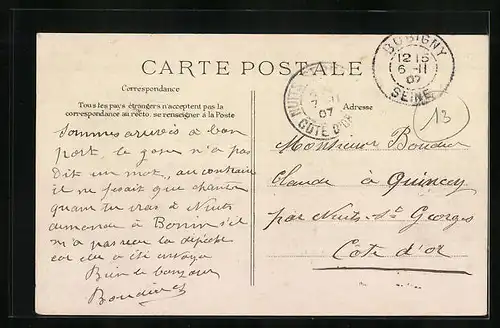 CARTE POSTALE
Correspondance
Tous les pays étrangers n'acceptent pas la
correspondance au recto, se renseigner à la Poste
Adresse
BOBIGNY
12 15
6 -11
07
SEINE
NUITS
7 -11
07
COTE D'OR
13
Sommes arrivés à bon
port, le gosse n'a pas
dit un mot, au contraire
il ne fesait que chanter
quant tu iras à Nuits
demande à Bonin s'il
m'a passer la dépêche
car elle a été envoyé
Bien le bonjour
Monsieur
Claude à Quincey
par Nuits-St Georges
Côte d'or